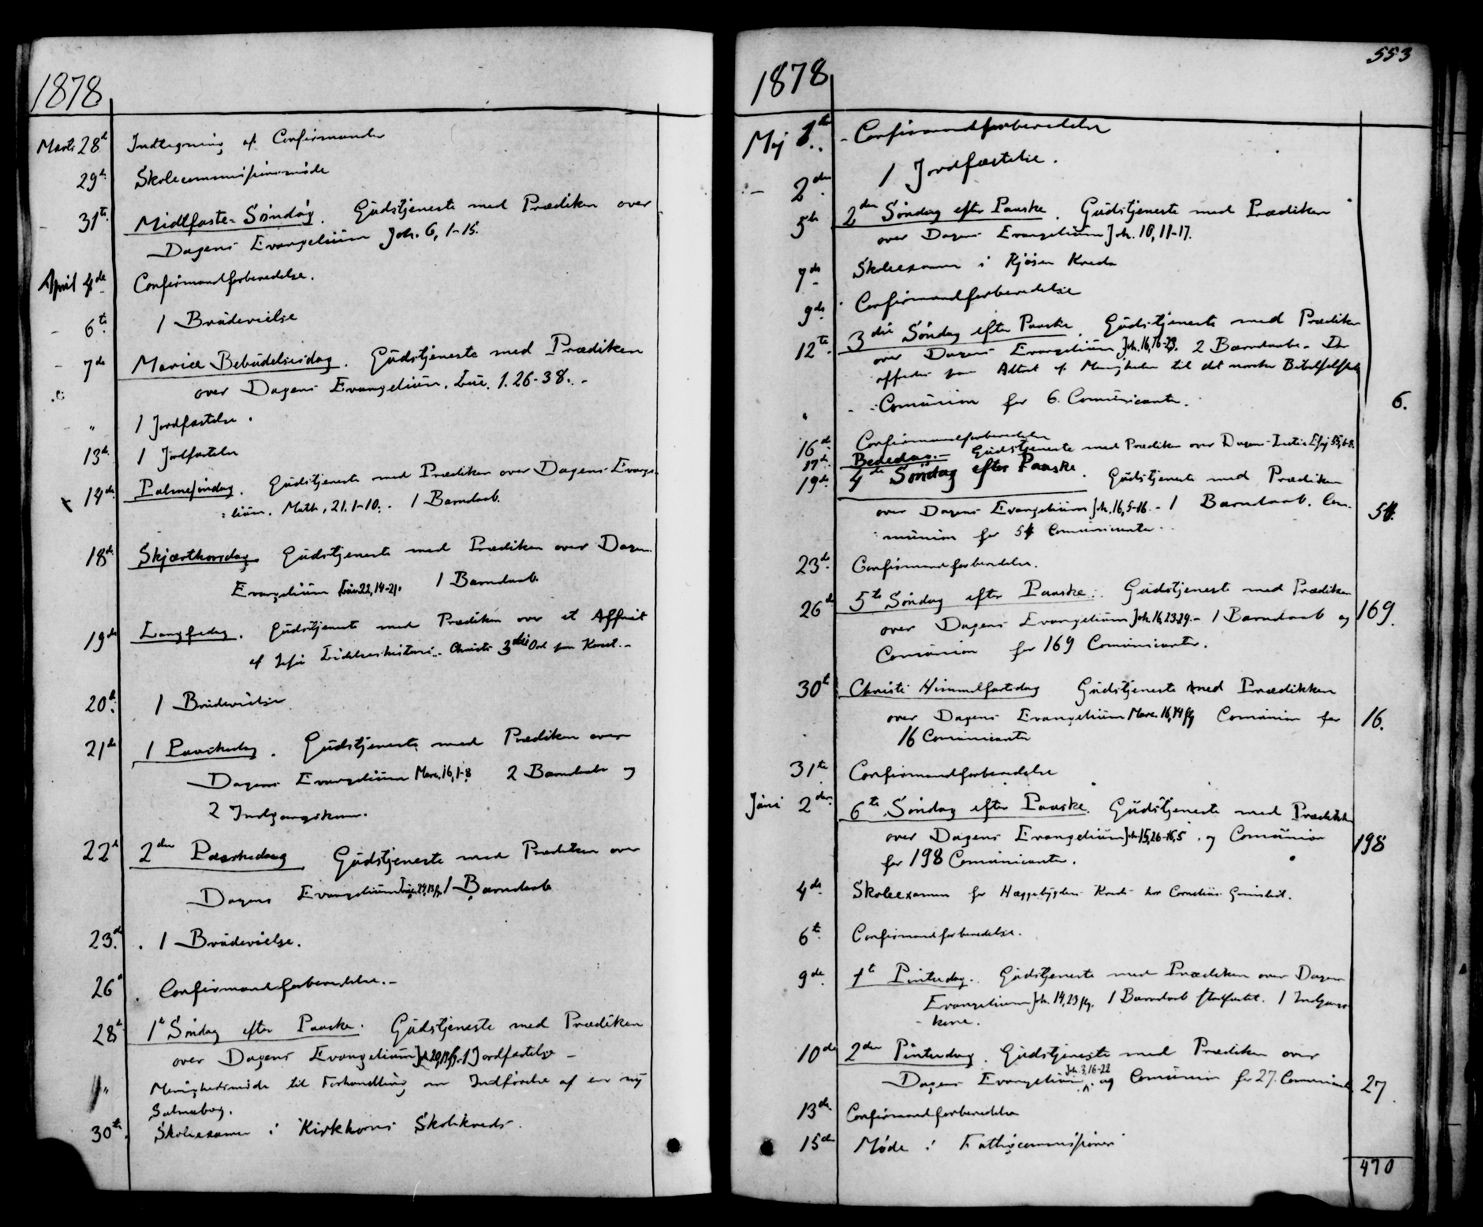 1878
Marts 28de Indtegning af Confirmander
29de Skolecommissionsmøde
31te Midtfaste-Søndag. Gudstjeneste med Prædiken over
Dagens Evangelium Joh. 6, 1-15.
April 4de Confirmandforberedelse.
6te 1 Brudevielse
7de Mariæ Bebudelsesdag. Gudstjeneste med Prædiken
over Dagens Evangelium. Luc. 1. 26-38.
" 1 Jordfæstelse.
13de 1 Jordfæstelse
14de Palmesøndag. Gudstjeneste med Prædiken over Dagens Evange-
lium. Math. 21. 1-10. 1 Barndaab.
18de Skjærthorsdag Gudstjeneste med Prædiken over Dagens
Evangelium Luc 22, 14-21. 1 Barndaab
19de Langfredag. Gudstjeneste med Prædiken over et Affsnit
af Jesu Lidelseshistorie. Christi 3die Ord paa Korset.
20de 1 Brudevielse
21de 1 Paaskedag. Gudstjeneste med Prædiken over
Dagens Evangelium Marc. 16, 1-8 2 Barndaab og
2 Indgangskoner.
22de 2den Paaskedag Gudstjeneste med Prædiken over
Dagens Evangelium 1 Barndaab
23de 1 Brudevielse.
26de Confirmandforberedelse.
28de 1te Søndag efter Paaske. Gudstjeneste med Prædiken
over Dagens Evangelium 1 Jordfæstelse
" Menighedsmøde til Forhandling om Indførelse af en ny
Salmebog.
30te Skoleexamen i Kirkhorns Skolekreds.
553
1878
Maj 1te Confirmandforberedelse
2den 1 Jordfæstelse.
5te 2den Søndag efter Paaske. Gudstjeneste med Prædiken
over Dagens Evangelium Joh. 10, 11-17.
7de Skoleexamen i Kreds
9de Confirmandforberedelse
12te 3die Søndag efter Paaske. Gudstjeneste med Prædiken
over Dagens Evangelium Joh. 16, 16-23. 2 Barndaab. Der
offredes paa Altret af Menigheden til det norske Bibelselskab
Comunion for 6 Comunicanter. 6.
16de Confirmandforberedelse
17de Bededag. Gudstjeneste med Prædiken over Dagens Text
19de 4de Søndag efter Paaske. Gudstjeneste med Prædiken
over Dagens Evangelium Joh. 16, 5-16. 1 Barndaab. Com-
munion for 54 Comunicanter. 54.
23de Confirmandforberedelse.
26de 5te Søndag efter Paaske. Gudstjeneste med Prædiken
over Dagens Evangelium Joh. 16, 23-29. 1 Barndaab og
Comunion for 169 Comunicanter. 169.
30te Christi Himmelfartsdag Gudstjeneste med Prædikken
over Dagens Evangelium Marc. 16, 14 flg Comunion for
16 Comunicanter 16.
31te Confirmandforberedelse
Juni 2den 6te Søndag efter Paaske. Gudstjeneste med Prædiken
over Dagens Evangelium Joh 15, 26-16, 5. og Comunion
for 198 Comunicanter. 198
4de Skoleexamen for Kreds hos Cornelius
6te Confirmandforberedelse.
9de 1te Pintsedag. Gudstjeneste med Prædiken over Dagens
Evangelium Joh. 14, 23 flg. 1 Barndaab stadfæstet. 1 Indgangs-
kone.
10de 2den Pintsedag. Gudstjeneste med Prædiken over
Dagens Evangelium Joh. 3, 16-22 og Comunion for 27 Comunicant. 27.
13de Confirmandforberedelse
15de Møde i Fattigcommissionen
470